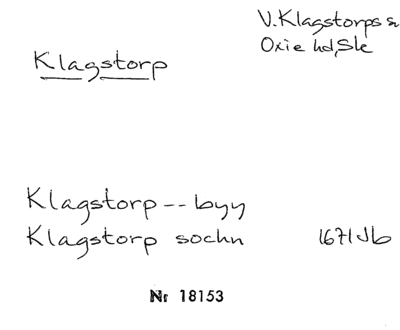 V. Klagstorps sn
Oxie hd, Sk
Klagstorp
Klagstorp -- byy
Klagstorp sochn 1671 Jb
Nr 18153